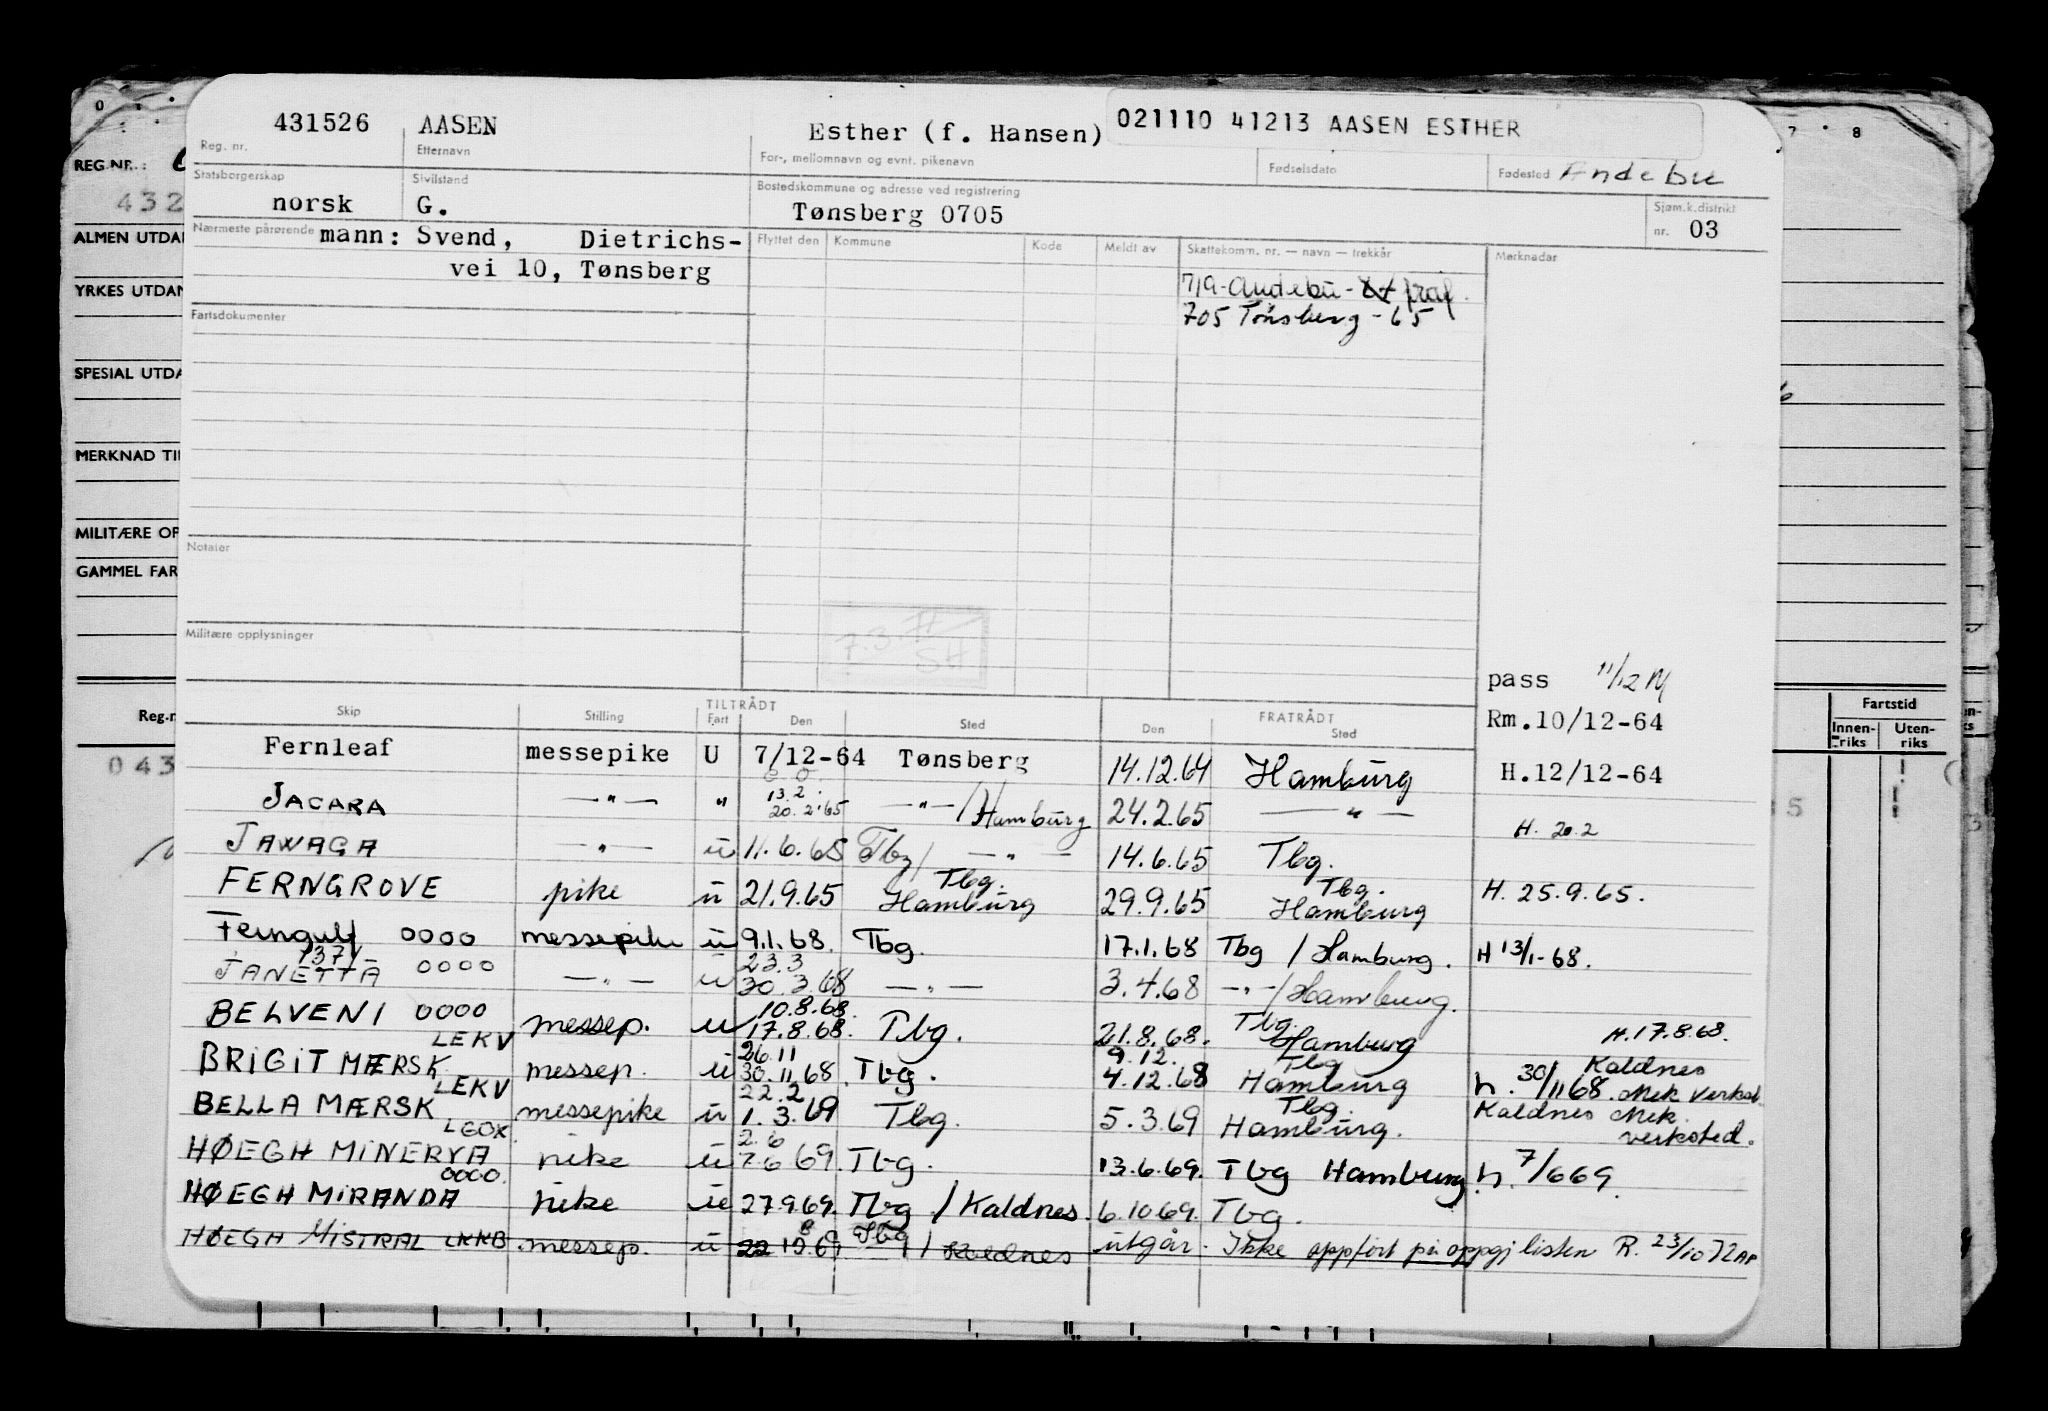 431526 AASEN Esther (f. Hansen) 021110 41213 AASEN ESTHER
Reg. nr. Etternavn For-, mellomnavn og evnt. pikenavn Fødselsdato Fødested Andebu
Statsborgerskap Sivilstand Bostedskommune og adresse ved registrering Sjøm.k.distrikt
norsk G. Tønsberg 0705 nr. 03
Nærmeste pårørende mann: Svend, Dietrichs-
vei 10, Tønsberg
Flyttet den Kommune Kode Meldt av Skattekomm. nr. — navn — trekkår Merknader
719-Andebu-
705 Tønsberg - 65
Fartsdokumenter
Notater
Militære opplysninger
7.3 H
SH
pass 11/12
Rm.10/12-64
Skip Stilling TILTRÅDT Fart Den Sted Den FRATRÅDT Sted
Fernleaf messepike U 7/12-64 Tønsberg 14.12.64 Hamburg H.12/12-64
13.2.
JACARA —"— " 20.2.65 —"—/Hamburg 24.2.65 —"— H. 20.2
JAWAGA —"— u 11.6.65 Tbg/ —"— 14.6.65 Tbg.
Tbg. Tbg.
FERNGROVE pike u 21.9.65 Hamburg 29.9.65 Hamburg H. 25.9.65.
Ferngulf 0000 messepike u 9.1.68. Tbg. 17.1.68 Tbg / Hamburg. H 13/1-68.
23.3
JANETTA 0000 —"— u 30.3.68 —"— 3.4.68 —"—/Hamburg.
10.8.68.
BELVENI 0000 messep. u 17.8.68. Tbg. 21.8.68. Tbg. Hamburg H. 17.8.68.
LEKV 26.11 9.12. Tbg Kaldnes
BRIGIT MÆRSK messep. u 30.11 68 Tbg. 4.12.68 Hamburg h. 30/11 68. Mek Verkst.
LEKV 22.2 Tbg. Kaldnes Mek.
BELLA MÆRSK messepike u 1.3.69 Tbg. 5.3.69 Hamburg. verksted.
LGOX 2.6
HØEGH MINERVA pike u 7.6 69. Tbg. 13.6.69. Tbg Hamburg h. 7/6 69.
0000.
HØEGH MIRANDA pike u 27.9.69. Tbg / Kaldnes. 6.10.69. Tbg.
HØEGH MISTRAL LKKB messep. u 69 Tbg / Kaldnes utgår. Ikke oppført på oppgj listen R. 23/10 72
REG.NR.:
432
ALMEN UTDA
YRKES UTDAN
SPESIAL UTDA
MERKNAD TI
MILITÆRE OP
GAMMEL FAR
Reg.-n
043
7 8
Fartstid
Innen-riks Uten-riks
5